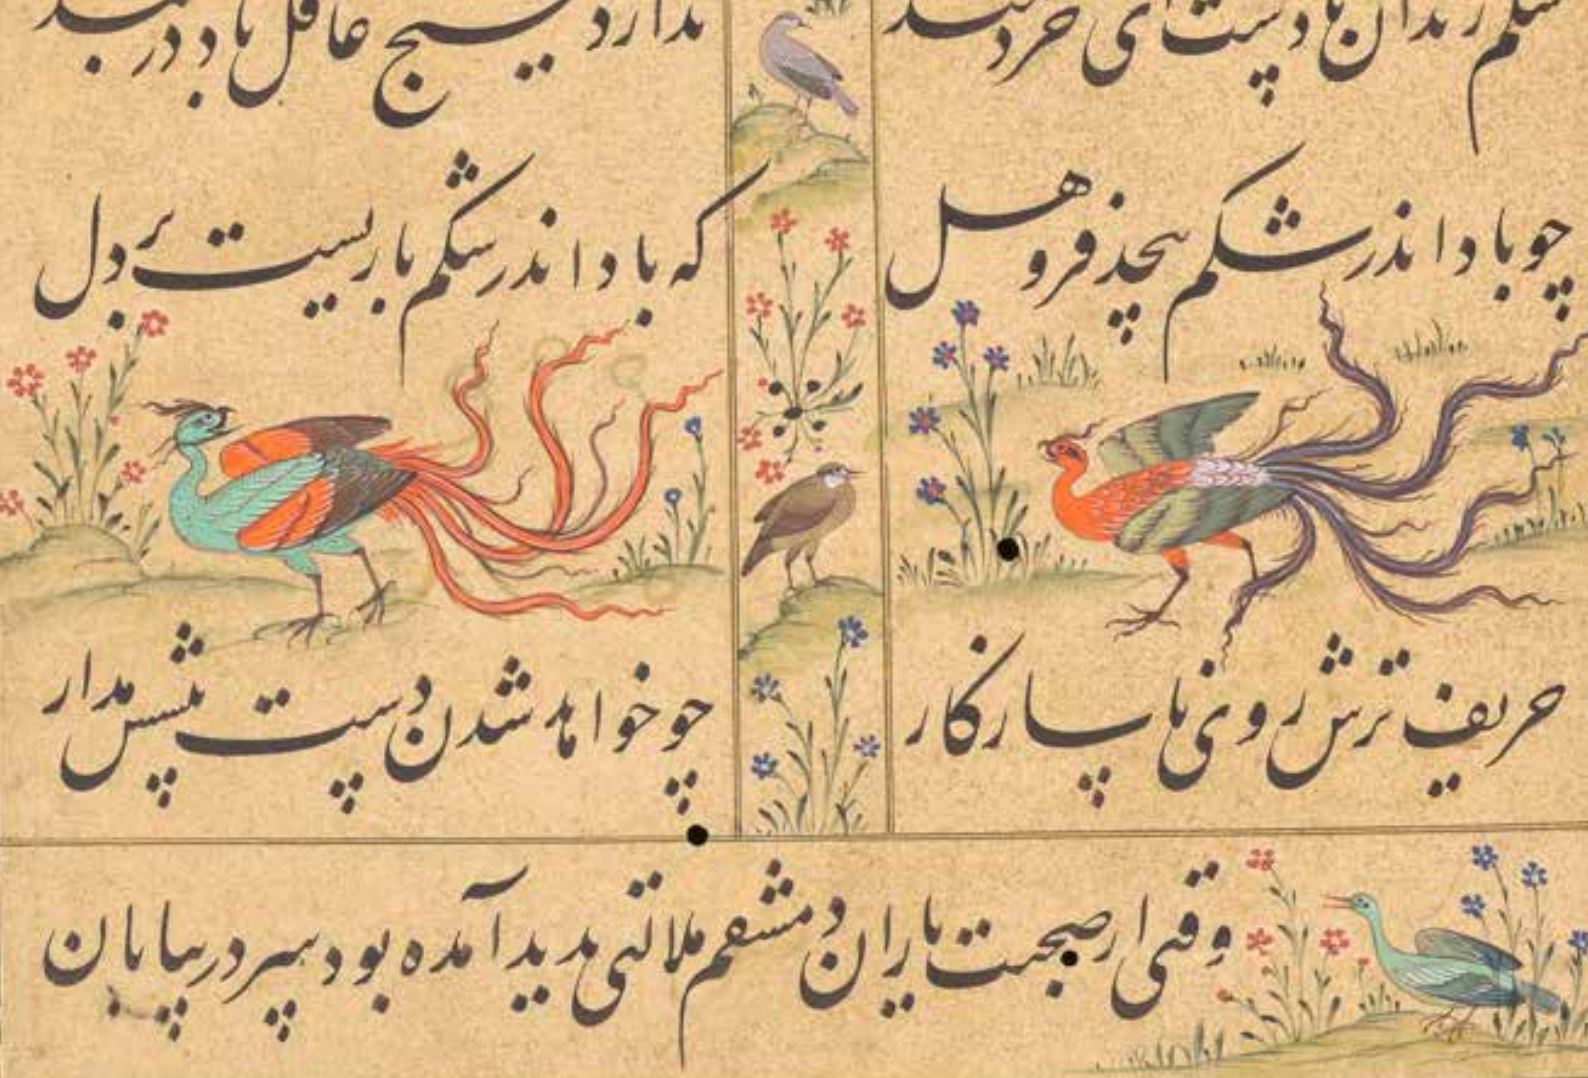 شکم زندان بادست ای خردمند ندارد هیچ عاقل باد در بند
چو باد اندر شکم پیچد فرو هل که باد اندر شکم بارست بر دل
حریف ترش روی ناسازگار چو خواهد شدن دست پیشش مدار
وقتی از صحبت یاران دمشقم ملالتی پدید آمده بود سر در بیابان